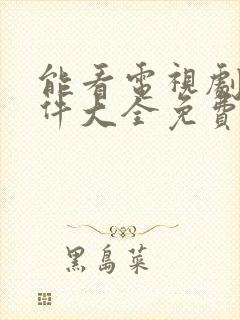 能看電視劇
件大全免費
黑島菜